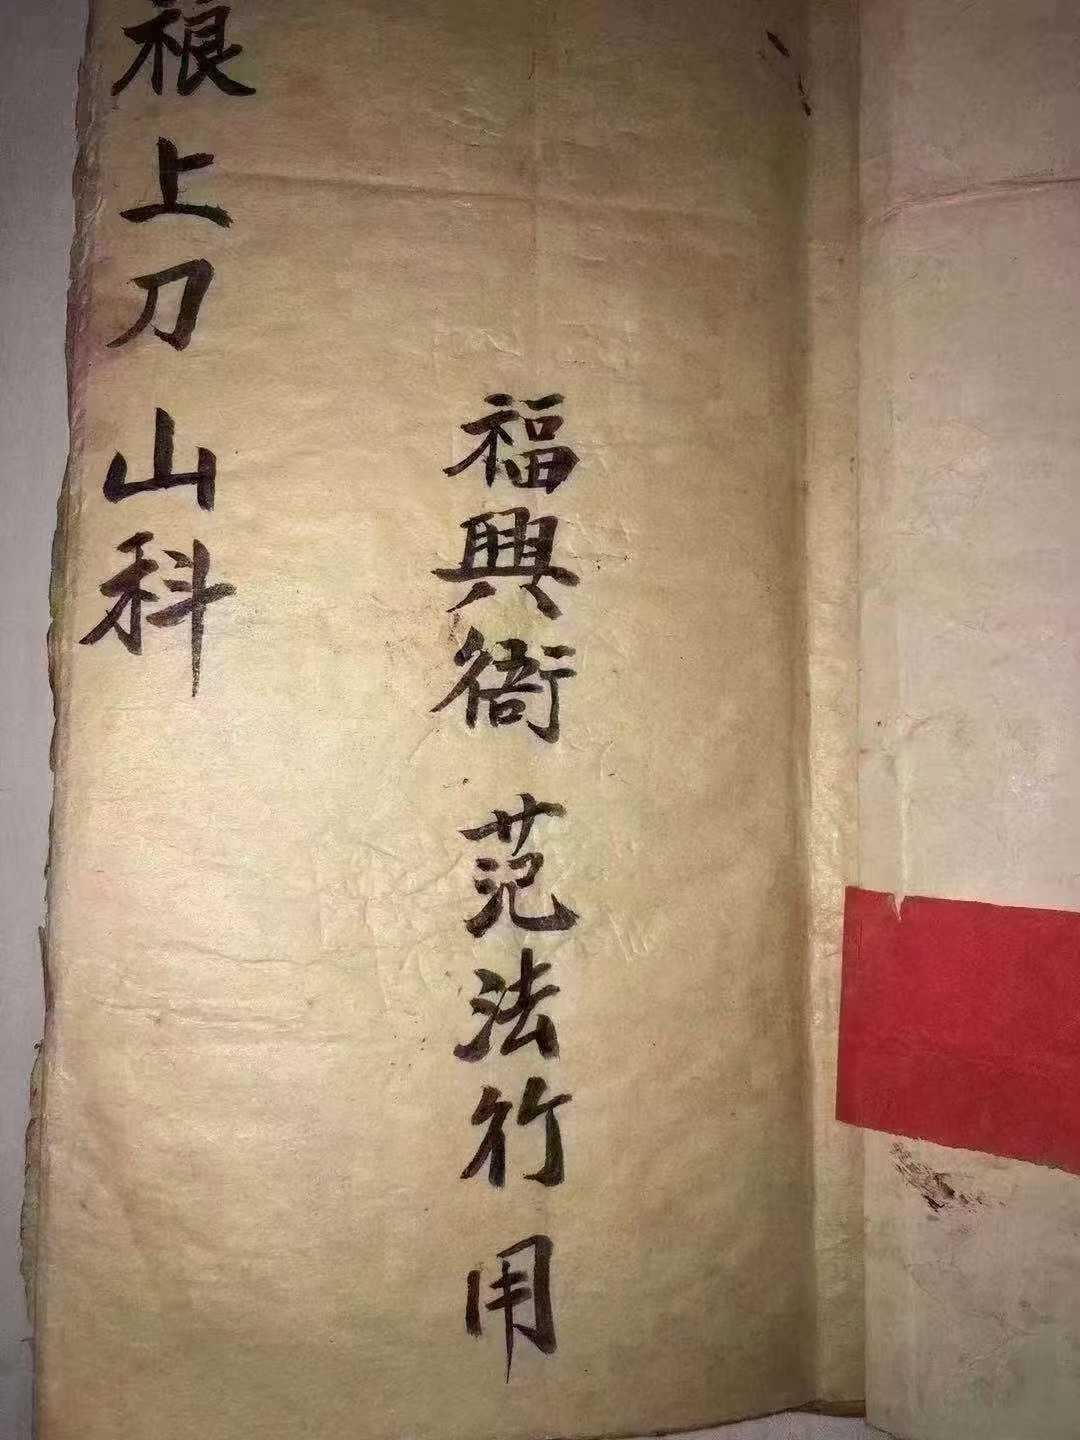 福興衙 范法竹 用
上刀山科